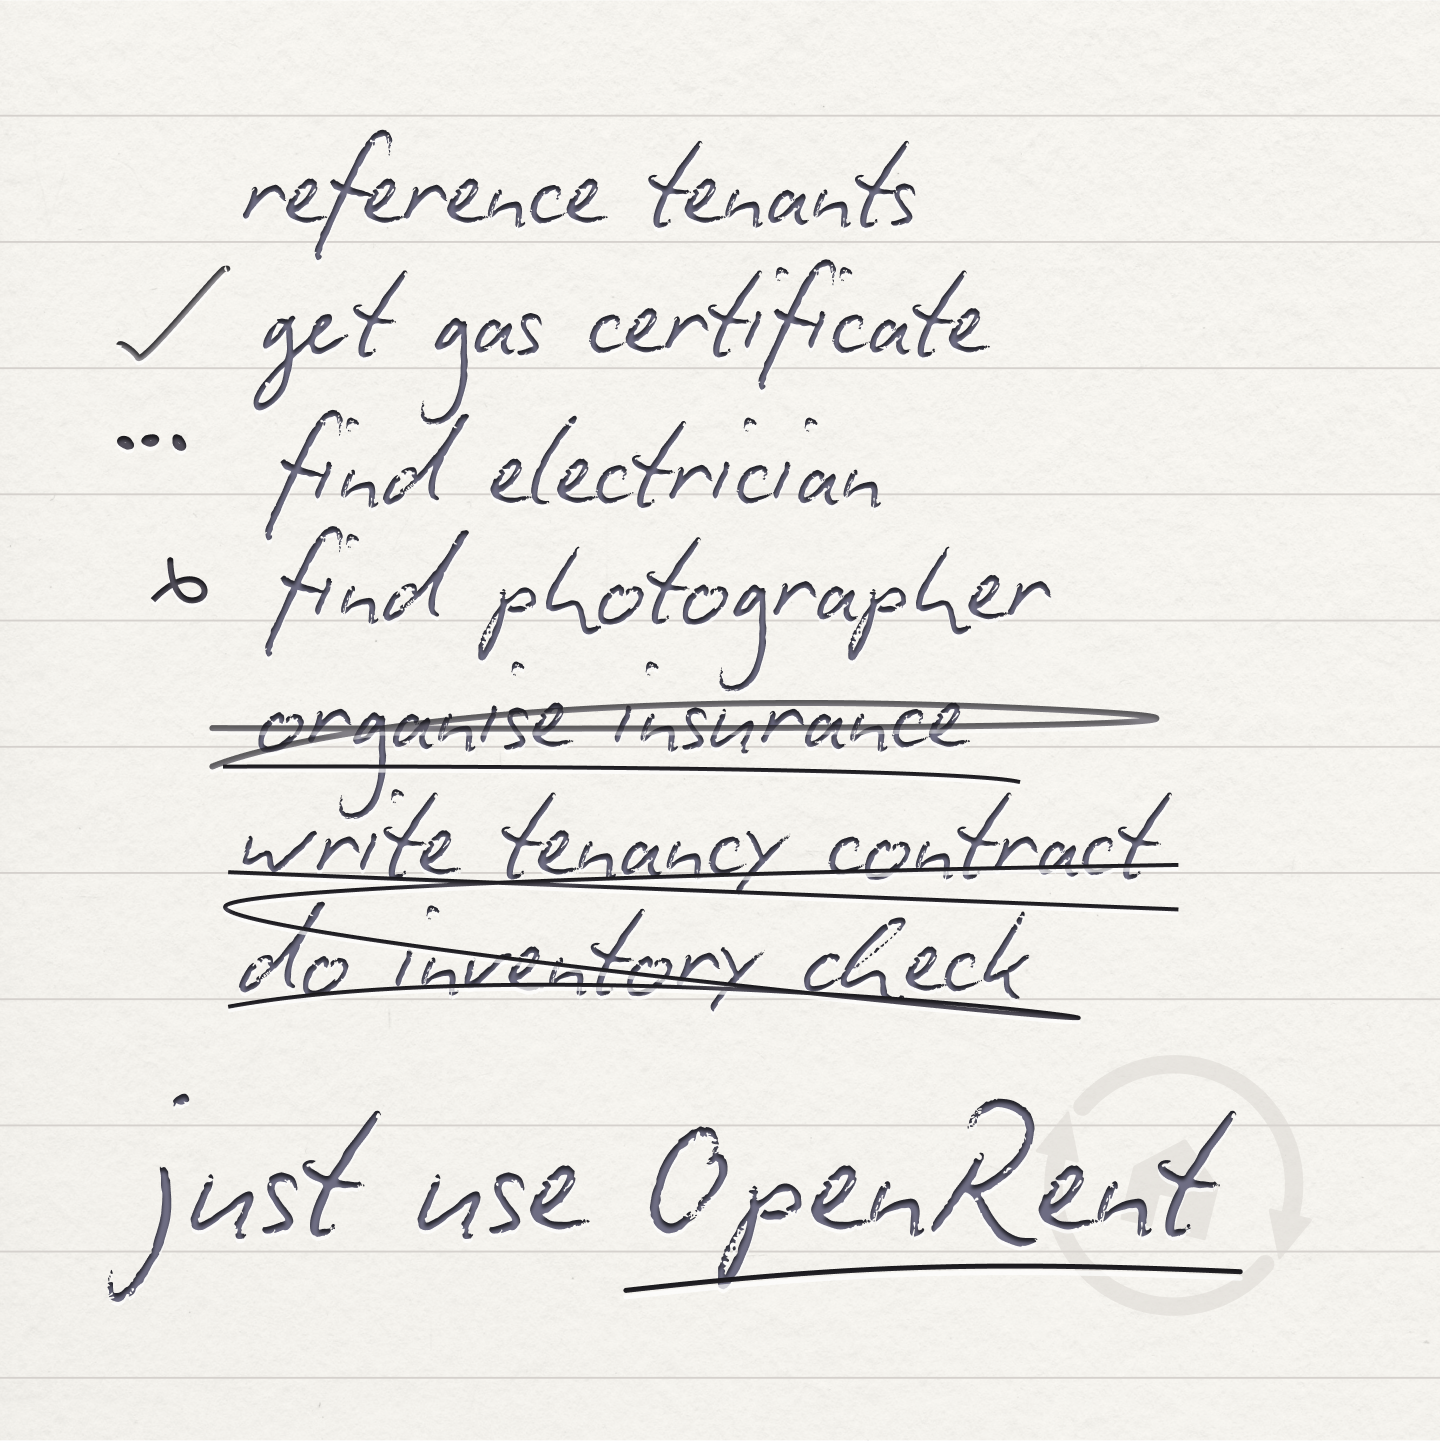 reference tenants
get gas certificate
find electrician
find photographer
organise insurance
write tenancy contract
do inventory check
just use OpenRent